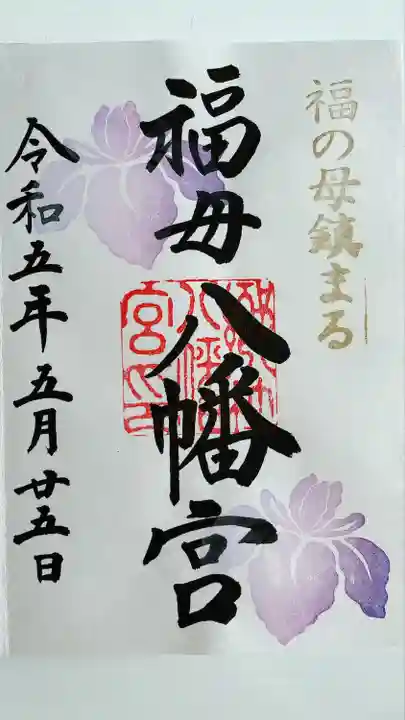 福の母鎮まる
福母八幡宮
令和五年五月廿五日